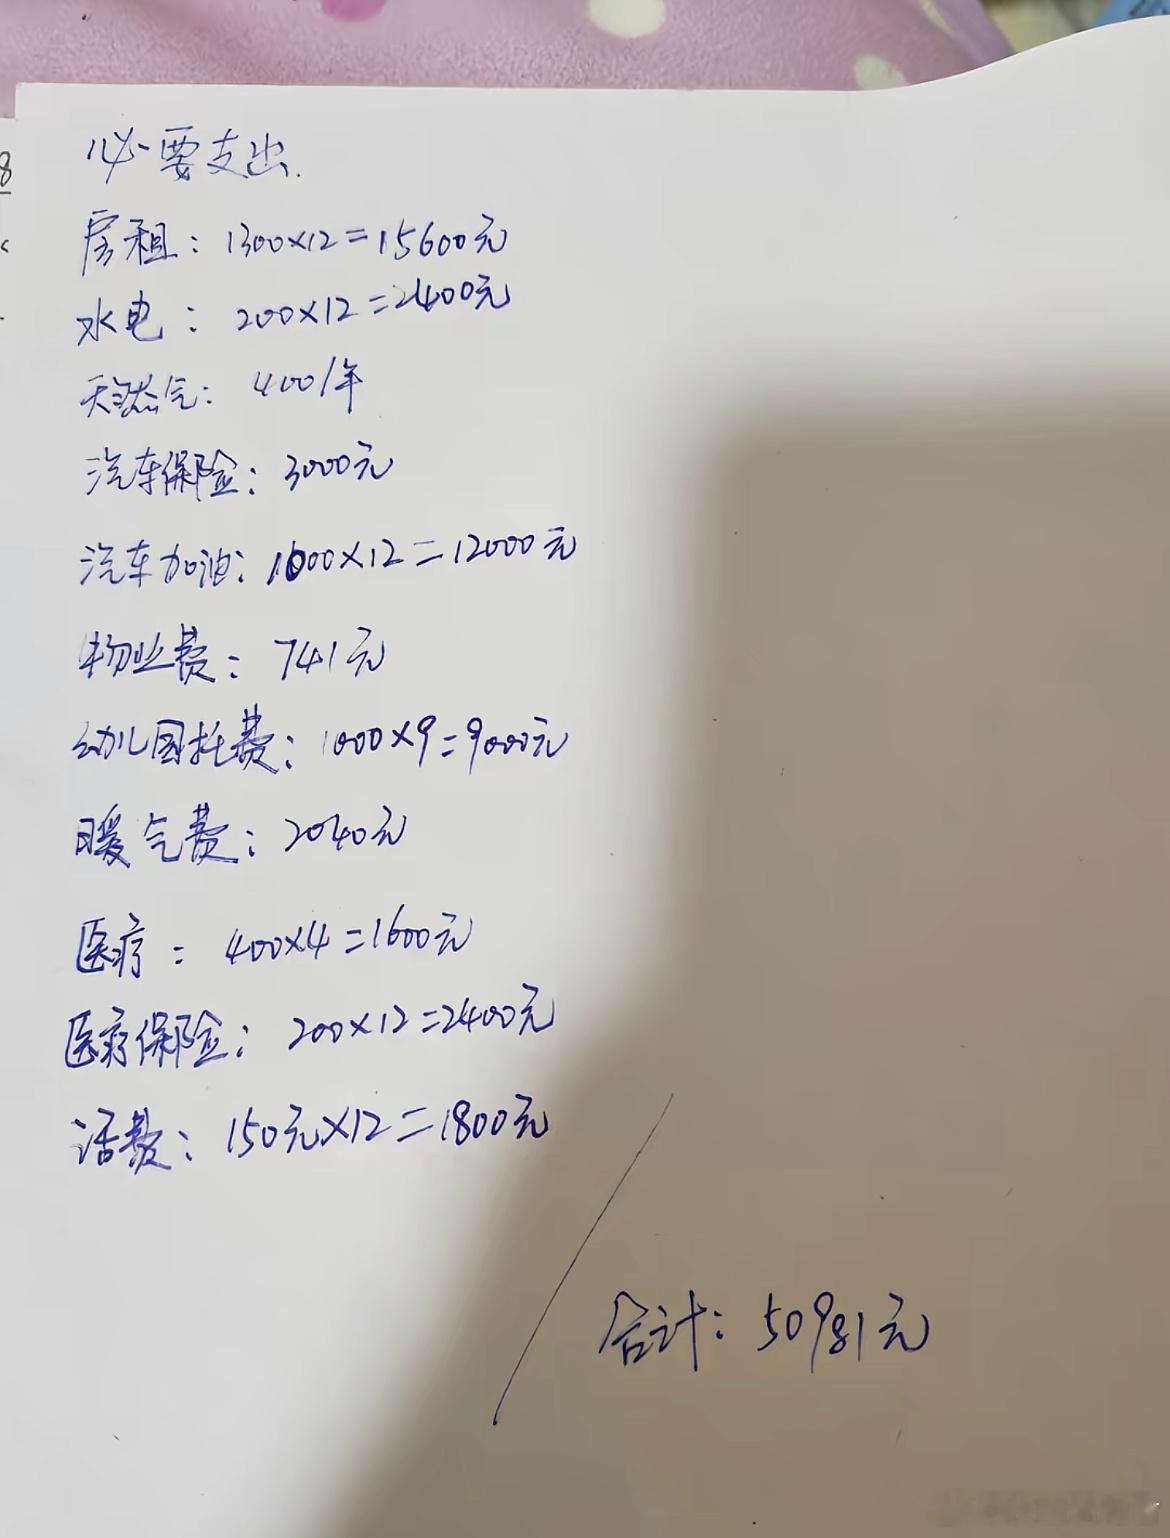 必要支出.
房租：1300×12=15600元
水电：200×12=2400元
天然气：400/年
汽车保险：3000元
汽车加油：1000×12=12000元
物业费：741元
幼儿园托费：1000×9=9000元
暖气费：2040元
医疗：400×4=1600元
医疗保险：200×12=2400元
话费：150元×12=1800元
合计：50981元
8